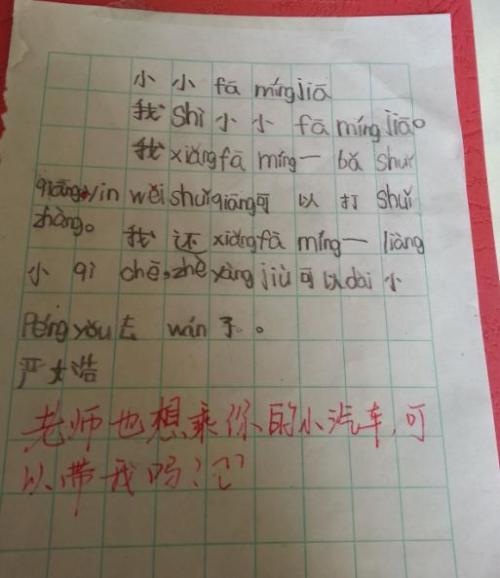 小小 fā míng jiā
我 shì 小小 fā míng jiā。
我 xiǎng fā míng 一 bǎ shuǐ
qiāng, yīn wèi shuǐ qiāng 可以打 shuǐ
zhàng。我还 xiǎng fā míng 一 liàng
小 qì chē, zhè yàng jiù 可以 dài 小
Péng yǒu 去 wán 了。
严大浩
老师也想乘你的小汽车,可
以带我吗?